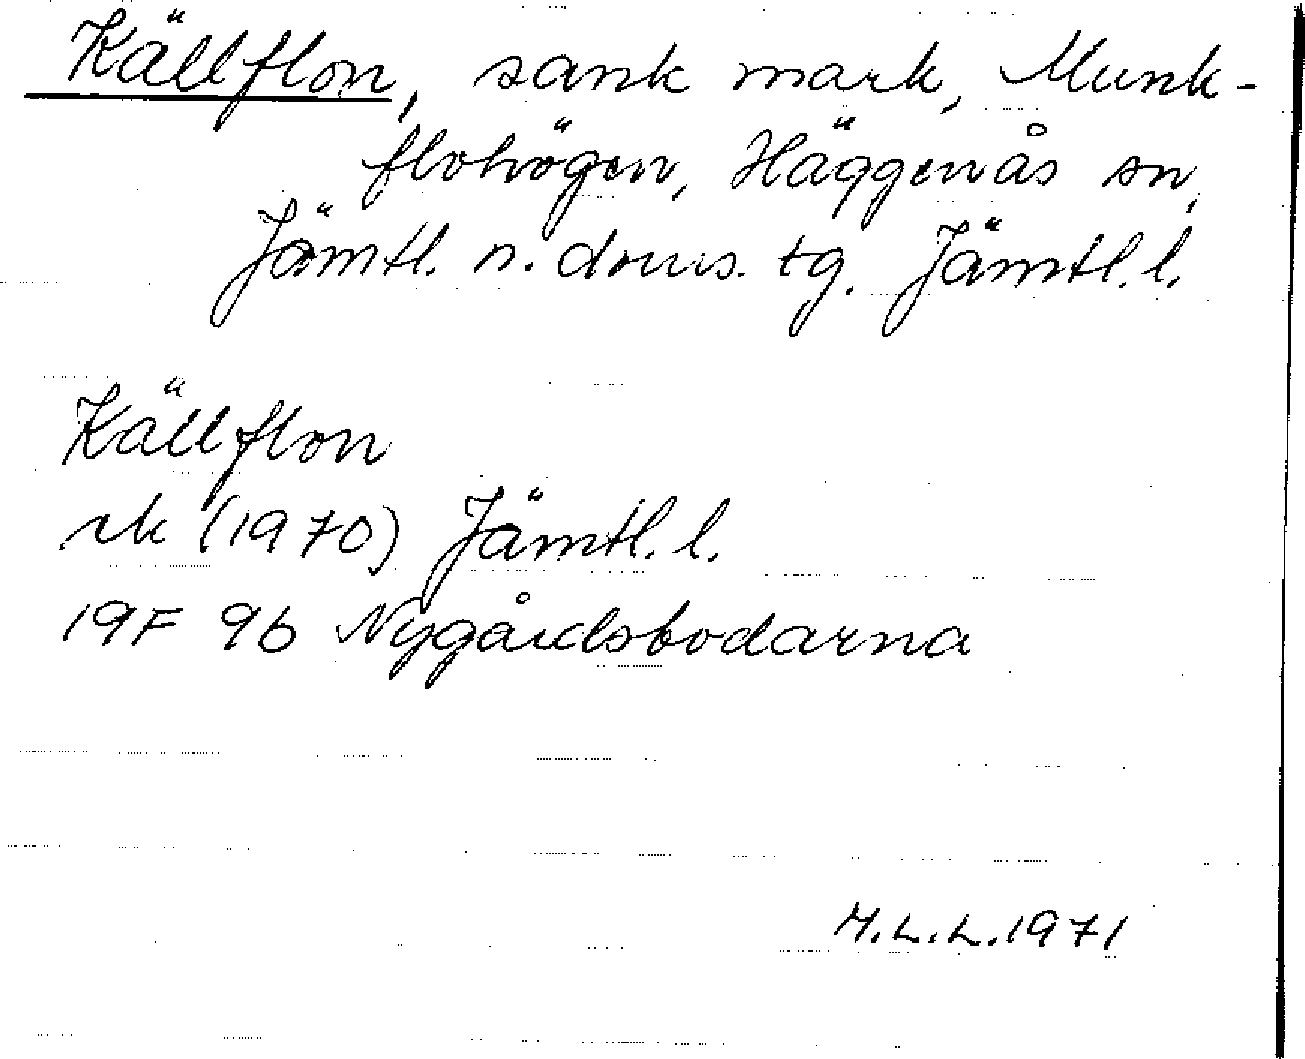 Källflon, sank mark, Munk-
flohögen, Häggenås sn,
Jämtl. n. doms. tg. Jämtl. l.
Källflon
rk (1970) Jämtl. l.
19F 9b Nygårdsbodarna
M.L.L. 1971